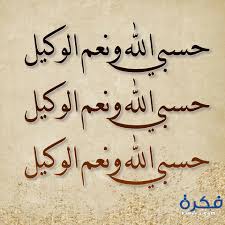 حسبي الله ونعم الوكيل
حسبي الله ونعم الوكيل
حسبي الله ونعم الوكيل
فكرة